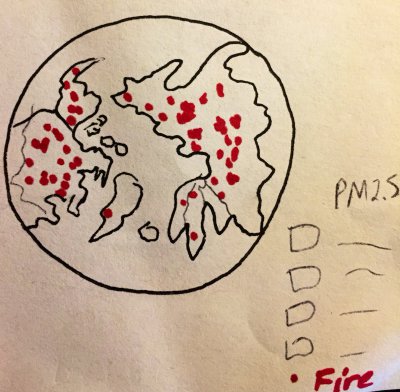 PM2.5
Fire